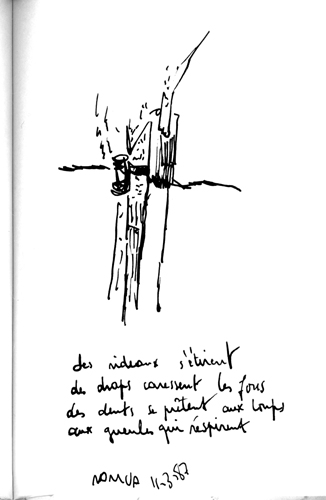 des rideaux s'étirent
des draps caressent les fous
des dents se prêtent aux loups
aux gueules qui respirent